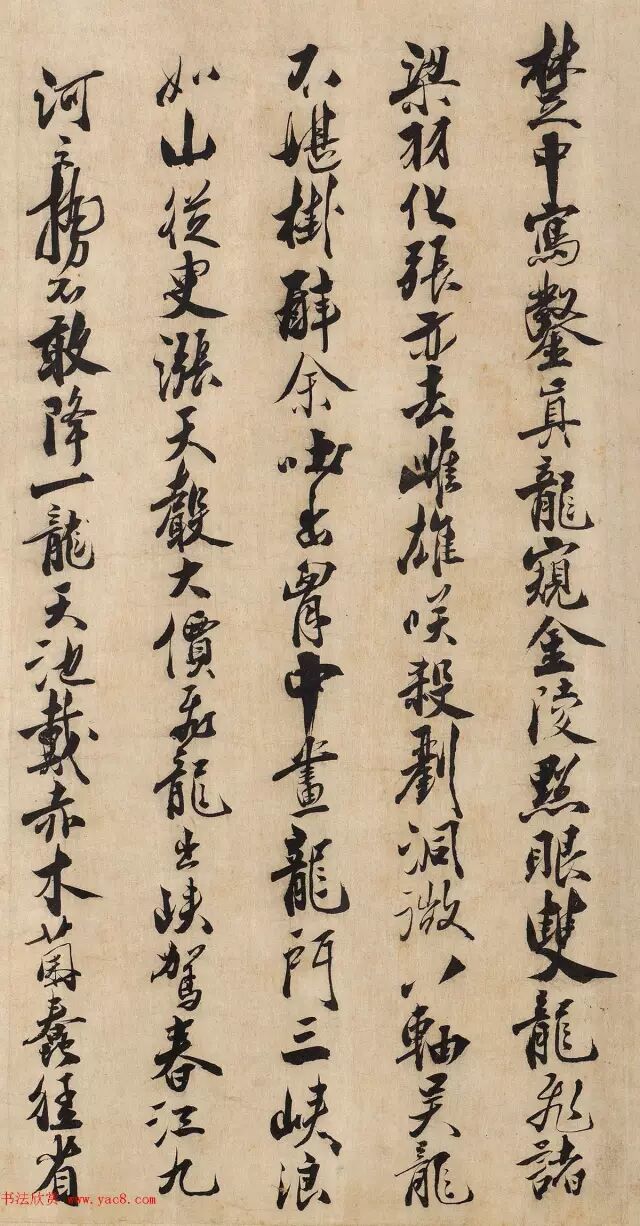 楚中寫鑿真龍窺金陵點眼雙龍飛諸
梁羽化張亦去雌雄咲殺劉洞微八軸吳龍
不堪掛醉余吐出胷中畫龍門三峽浪
如山從叟漲天聲大價飛龍出峽駕春江九
河之勢不敢降一龍天池戴赤木菌蠢
书法欣赏 www.yac8.com